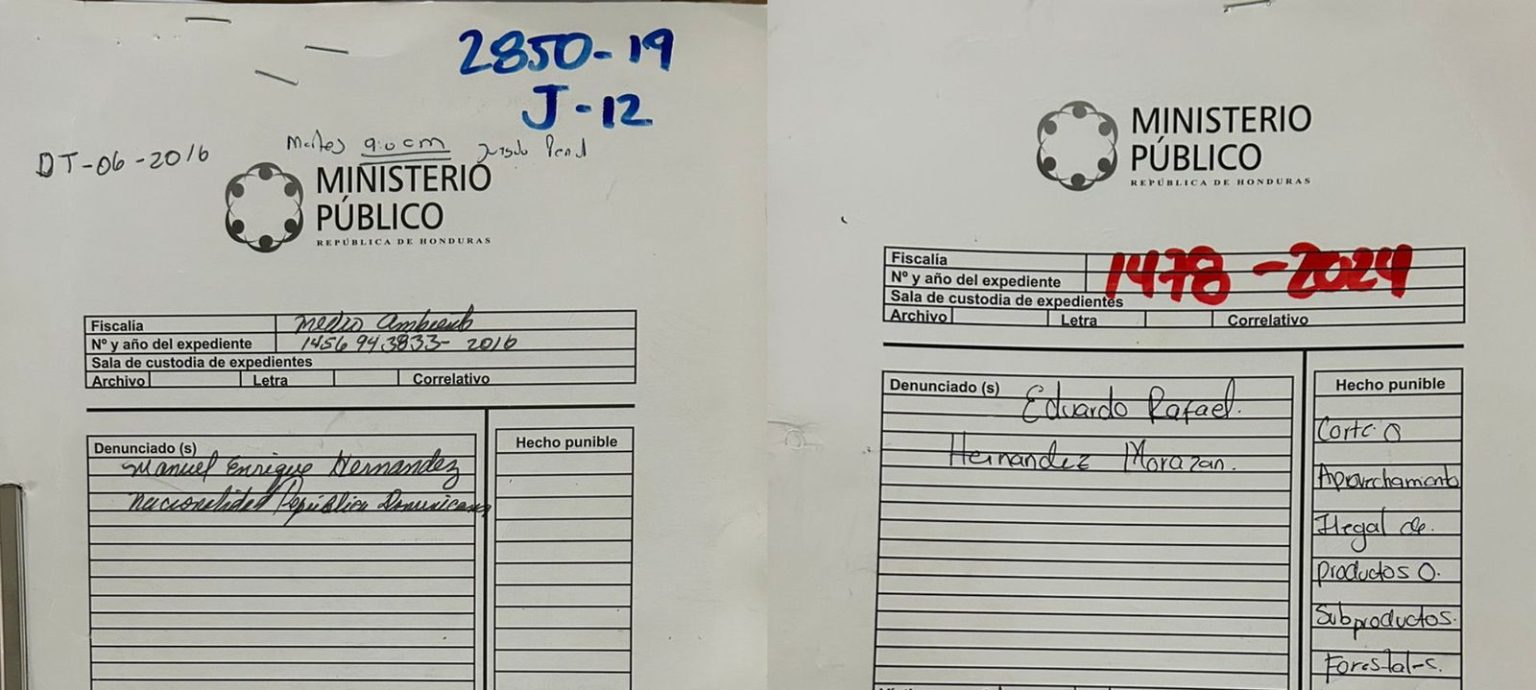 2850-19
J-12
DT-06-2016
9:0 am
MINISTERIO
PÚBLICO
REPÚBLICA DE HONDURAS
Fiscalía Medio Ambiente
Nº y año del expediente 1456943833- 2016
Sala de custodia de expedientes
Archivo Letra Correlativo
Denunciado (s)
Manuel Enrique Hernandez
nacionalidad República Dominicana
Hecho punible
MINISTERIO
PÚBLICO
REPÚBLICA DE HONDURAS
Fiscalía
Nº y año del expediente 1478-2024
Sala de custodia de expedientes
Archivo Letra Correlativo
Denunciado (s) Eduardo Rafael.
Hernandez Morazan.
Hecho punible
Corte O
Aprovechamento
Ilegal de.
productos O.
Subproductos.
Forestal-s.